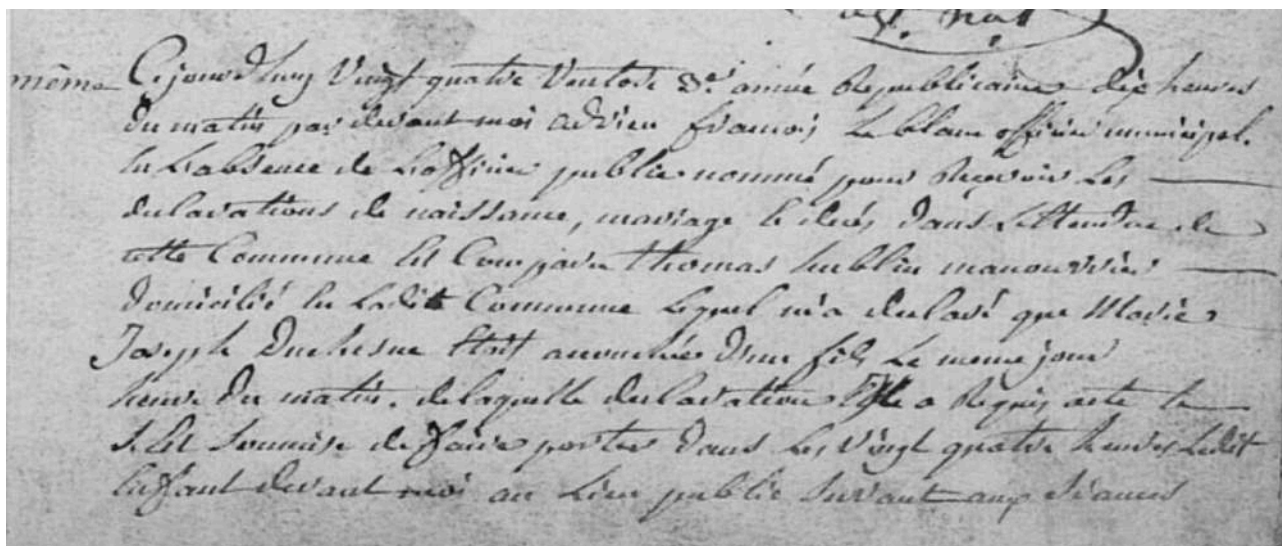 agt. nat.
même Cejourdhuy Vingt quatre Ventose 3e. année Republicaine dix heures
du matin par devant moi adrien francois Le blanc officier municipal.
En L'absence de L'officier public nommé pour Recevoir Les
declarations de naissance, mariage & decés dans L'ettendue de
cette Commune Est Comparu thomas hublin manouvrier
domicilié En Ladite Commune Lequel m'a declaré que Marie
Joseph Duchesne Etait accouchée d'un fils Le meme jour
heure du matin. de laquelle declaration Elle a Requis acte &
s'est Soumise de faire porter dans Les Vingt quatre heures Ledit
Enfant devant moi au Lieu public Servant aux Séances